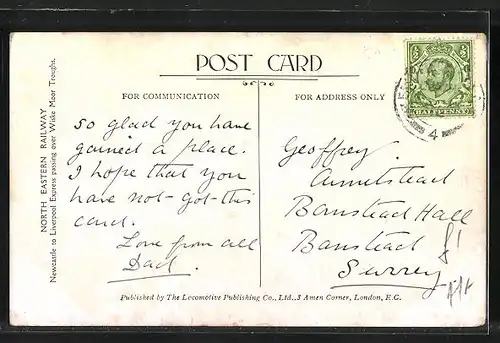 POST CARD
FOR COMMUNICATION
FOR ADDRESS ONLY
NORTH EASTERN RAILWAY
Newcastle to Liverpool Express passing over Wiske Moor Troughs.
so glad you have
gained a place.
I hope that you
have not got this
card.
Love from all
Dad.
Geoffrey
Armitstead
Banstead Hall
Banstead
Surrey
HALFPENNY
4
Published by The Locomotive Publishing Co., Ltd., 3 Amen Corner, London, E.C.